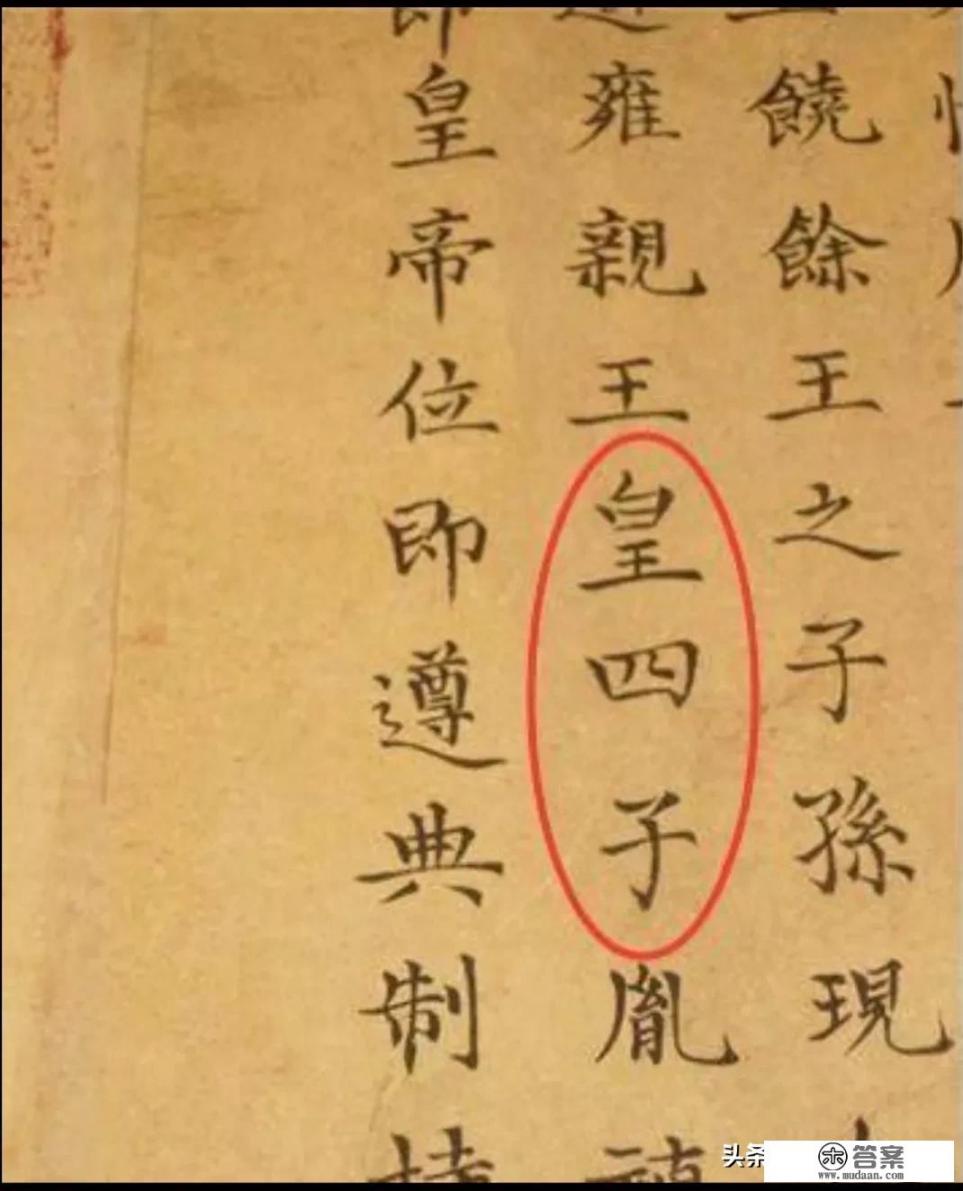 饒餘王之子孫現
雍親王皇四子胤禛
即皇帝位即遵典制持
头条
答案
www.mudaan.com